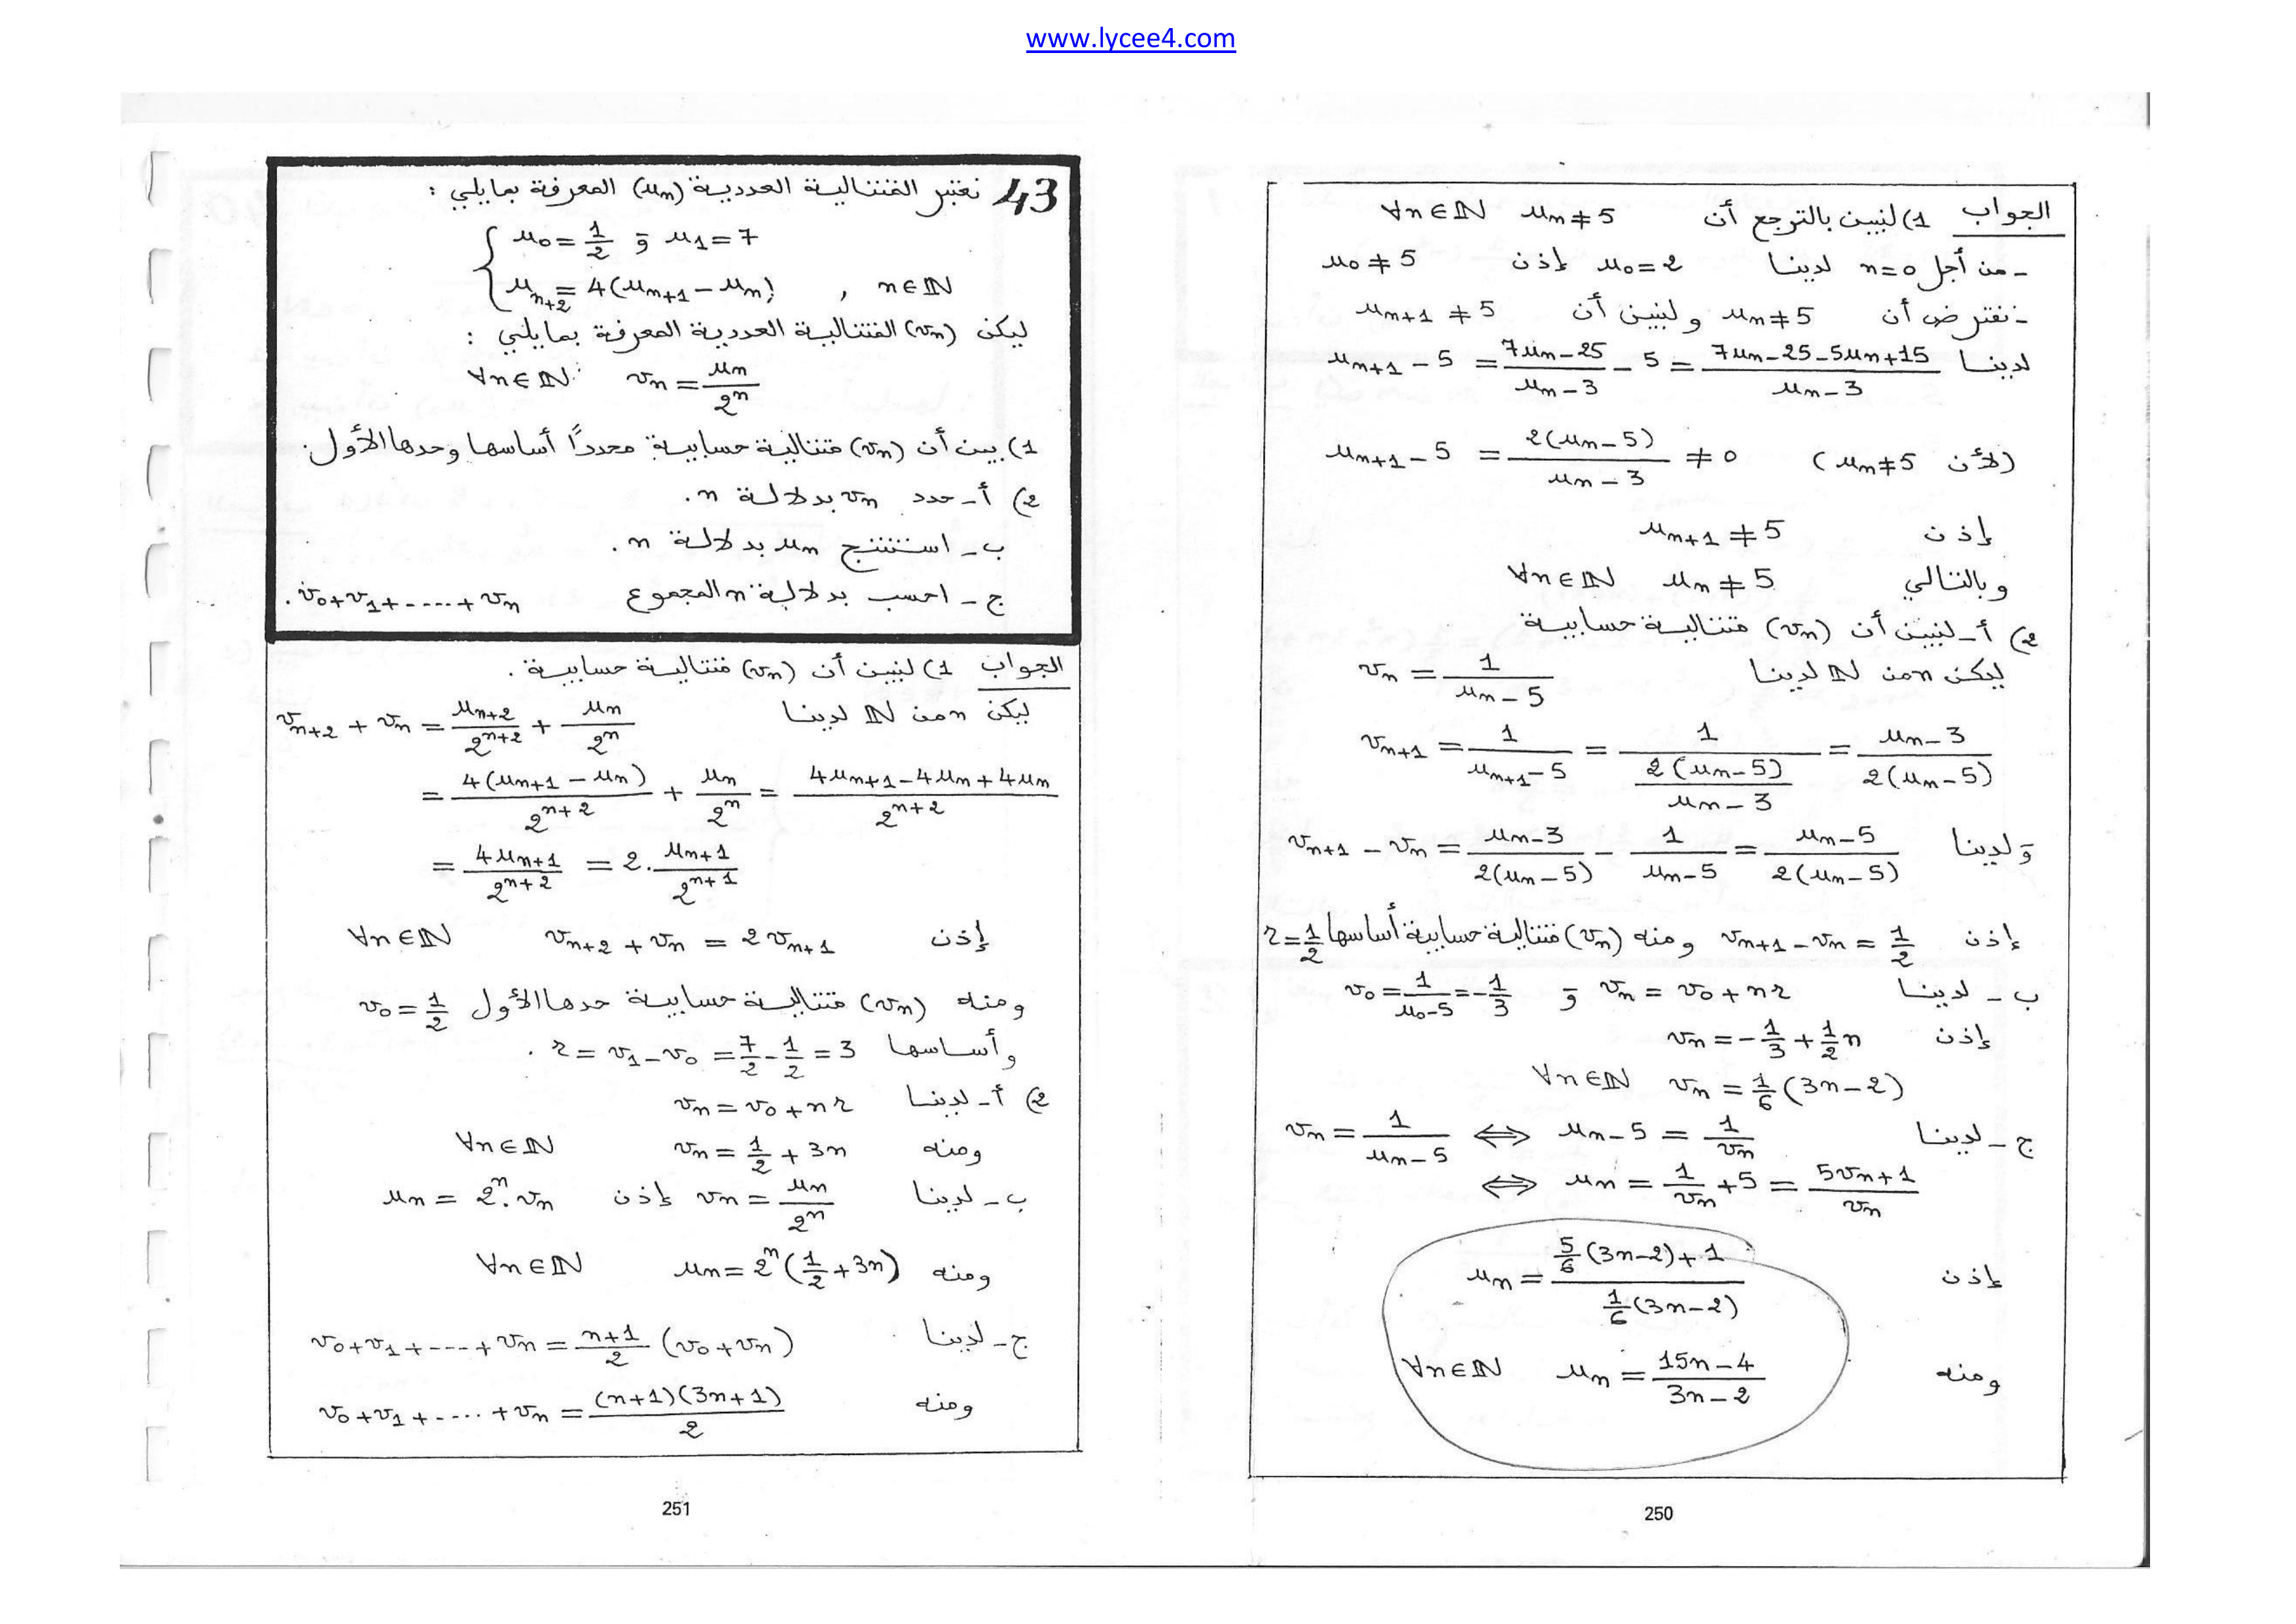 www.lycee4.com
الجواب 1) لنبين بالترجع أن u_n ≠ 5 ∀n∈ℕ
- من أجل n=0 لدينا u_0 = 2 إذن u_0 ≠ 5
- نفترض أن u_n ≠ 5 ولنبين أن u_{n+1} ≠ 5
لدينا u_{n+1} - 5 = (7u_n - 25)/(u_n - 3) - 5 = (7u_n - 25 - 5u_n + 15)/(u_n - 3)
u_{n+1} - 5 = 2(u_n - 5)/(u_n - 3) ≠ 0 (لأن u_n ≠ 5)
إذن u_{n+1} ≠ 5
وبالتالي u_n ≠ 5 ∀n∈ℕ
2) أ- لنبين أن (v_n) متتالية حسابية
ليكن n من ℕ لدينا v_n = 1/(u_n - 5)
v_{n+1} = 1/(u_{n+1} - 5) = 1/(2(u_n - 5)/(u_n - 3)) = (u_n - 3)/(2(u_n - 5))
ولدينا v_{n+1} - v_n = (u_n - 3)/(2(u_n - 5)) - 1/(u_n - 5) = (u_n - 5)/(2(u_n - 5))
إذن v_{n+1} - v_n = 1/2 ومنه (v_n) متتالية حسابية أساسها r = 1/2
ب- لدينا v_n = v_0 + nr و v_0 = 1/(u_0 - 5) = -1/3
إذن v_n = -1/3 + 1/2 n
v_n = 1/6 (3n - 2) ∀n∈ℕ
ج- لدينا v_n = 1/(u_n - 5) ⟺ u_n - 5 = 1/v_n
⟺ u_n = 1/v_n + 5 = (5v_n + 1)/v_n
إذن u_n = (5/6 (3n-2) + 1)/(1/6 (3n-2))
ومنه u_n = (15n - 4)/(3n - 2) ∀n∈ℕ
250
43 نعتبر المتتالية العددية (u_n) المعرفة بمايلي :
{ u_0 = 1/2 و u_1 = 7
u_{n+2} = 4(u_{n+1} - u_n) , n∈ℕ
ليكن (v_n) المتتالية العددية المعرفة بمايلي :
v_n = u_n/2^n ∀n∈ℕ
1) بين أن (v_n) متتالية حسابية محدداً أساسها وحدها الأول.
2) أ- حدد v_n بدلالة n.
ب- استنتج u_n بدلالة n.
ج- احسب بدلالة n المجموع v_0+v_1+.....+v_n.
الجواب 1) لنبين أن (v_n) متتالية حسابية.
ليكن n من ℕ لدينا v_{n+2} + v_n = u_{n+2}/2^{n+2} + u_n/2^n
= 4(u_{n+1} - u_n)/2^{n+2} + u_n/2^n = (4u_{n+1} - 4u_n + 4u_n)/2^{n+2}
= 4u_{n+1}/2^{n+2} = 2. u_{n+1}/2^{n+1}
إذن v_{n+2} + v_n = 2v_{n+1} ∀n∈ℕ
ومنه (v_n) متتالية حسابية حدها الأول v_0 = 1/2
وأساسها r = v_1 - v_0 = 7/2 - 1/2 = 3 .
2) أ- لدينا v_n = v_0 + nr
ومنه v_n = 1/2 + 3n ∀n∈ℕ
ب- لدينا v_n = u_n/2^n إذن u_n = 2^n . v_n
ومنه u_n = 2^n (1/2 + 3n) ∀n∈ℕ
ج- لدينا v_0+v_1+----+v_n = (n+1)/2 (v_0 + v_n)
ومنه v_0+v_1+.....+v_n = (n+1)(3n+1)/2
251